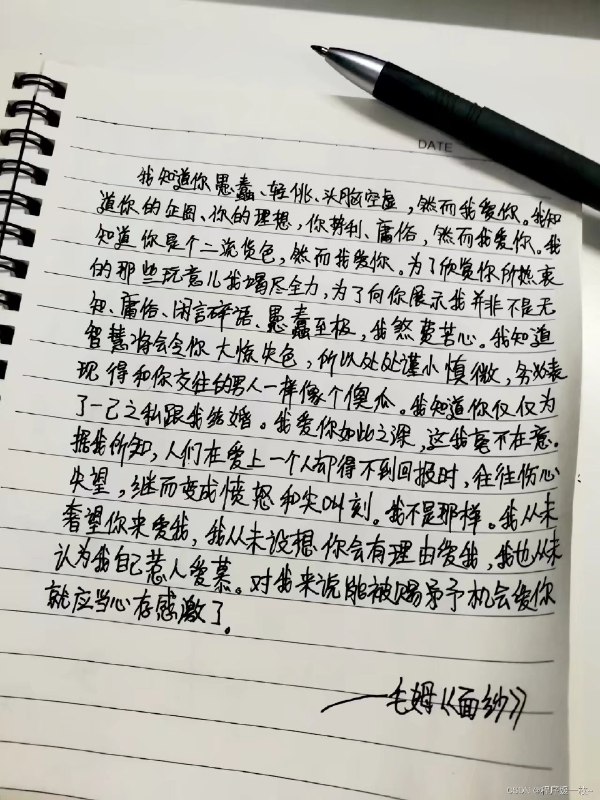 DATE
我知道你愚蠢、轻佻、头脑空虚，然而我爱你。我知
道你的企图、你的理想，你势利、庸俗，然而我爱你。我
知道你是个二流货色，然而我爱你。为了欣赏你所热衷
的那些玩意儿我竭尽全力，为了向你展示我并非不是无
知、庸俗、闲言碎语、愚蠢至极，我煞费苦心。我知道
智慧将会令你大惊失色，所以处处谨小慎微，务必表
现得和你交往的男人一样像个傻瓜。我知道你仅仅为
了一己之私跟我结婚。我爱你如此之深，这我毫不在意。
据我所知，人们在爱上一个人却得不到回报时，往往伤心
失望，继而变成愤怒和尖叫刻。我不是那样。我从未
奢望你来爱我，我从未设想你会有理由爱我，我也从未
认为我自己惹人爱慕。对我来说能被赐予机会爱你
就应当心存感激了。
——毛姆《面纱》